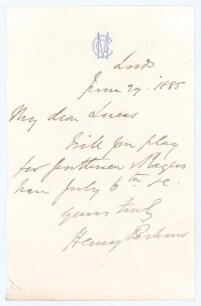 MCC
Lord's
June 29. 1885
My dear Lucas
Will you play
for Gentlemen v Players
here July 6th &c.
Yours truly
Henry Perkins